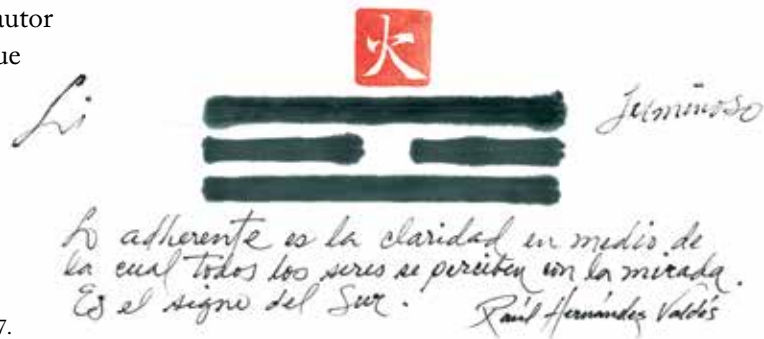 autor
ue
火
Li
luminoso
Lo adherente es la claridad en medio de
la cual todos los seres se perciben con la mirada.
Es el signo del Sur.
Raúl Hernández Valdés
7.